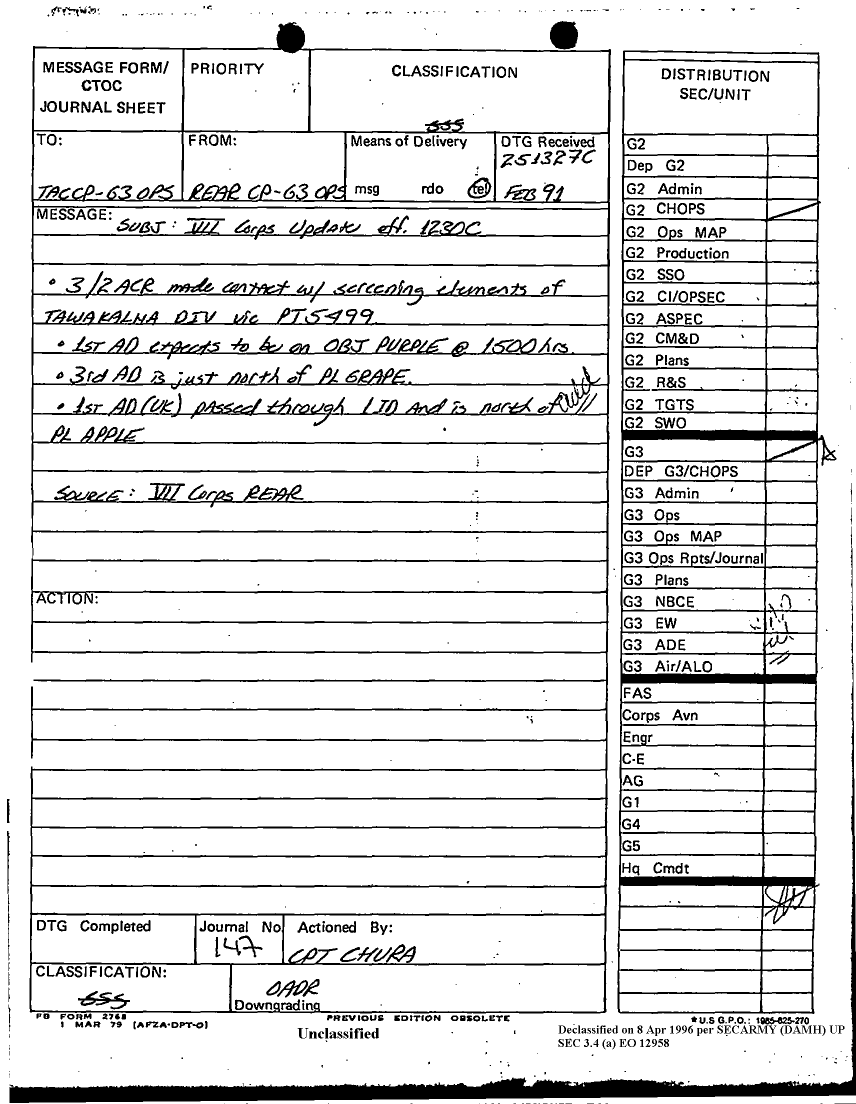 MESSAGE FORM/
CTOC
JOURNAL SHEET
PRIORITY
CLASSIFICATION
SSS
TO:
TACCP-G3 OPS
FROM:
REAR CP-G3 OPS
Means of Delivery
msg rdo tel
DTG Received
251327C
FEB 91
MESSAGE:
SUBJ: VII Corps Update eff. 1230C
• 3/2 ACR made contact w/ screening elements of
TAWAKALNA DIV vic PT5499.
• 1ST AD expects to be on OBJ PURPLE @ 1500 hrs.
• 3rd AD is just north of PL GRAPE.
• 1ST AD(UK) passed through 1 ID And is north of
PL APPLE
SOURCE: VII Corps REAR
ACTION:
DTG Completed
Journal No.
147
Actioned By:
CPT CHURA
CLASSIFICATION:
SSS
OADR
Downgrading
FB FORM 2768
1 MAR 79 (AFZA-DPT-O)
PREVIOUS EDITION OBSOLETE
DISTRIBUTION
SEC/UNIT
G2
Dep G2
G2 Admin
G2 CHOPS
G2 Ops MAP
G2 Production
G2 SSO
G2 CI/OPSEC
G2 ASPEC
G2 CM&D
G2 Plans
G2 R&S
G2 TGTS
G2 SWO
G3
DEP G3/CHOPS
G3 Admin
G3 Ops
G3 Ops MAP
G3 Ops Rpts/Journal
G3 Plans
G3 NBCE
G3 EW
G3 ADE
G3 Air/ALO
FAS
Corps Avn
Engr
C-E
AG
G1
G4
G5
Hq Cmdt
*U.S G.P.O.: 1985-625-270
Unclassified
Declassified on 8 Apr 1996 per SECARMY (DAMH) UP
SEC 3.4 (a) EO 12958